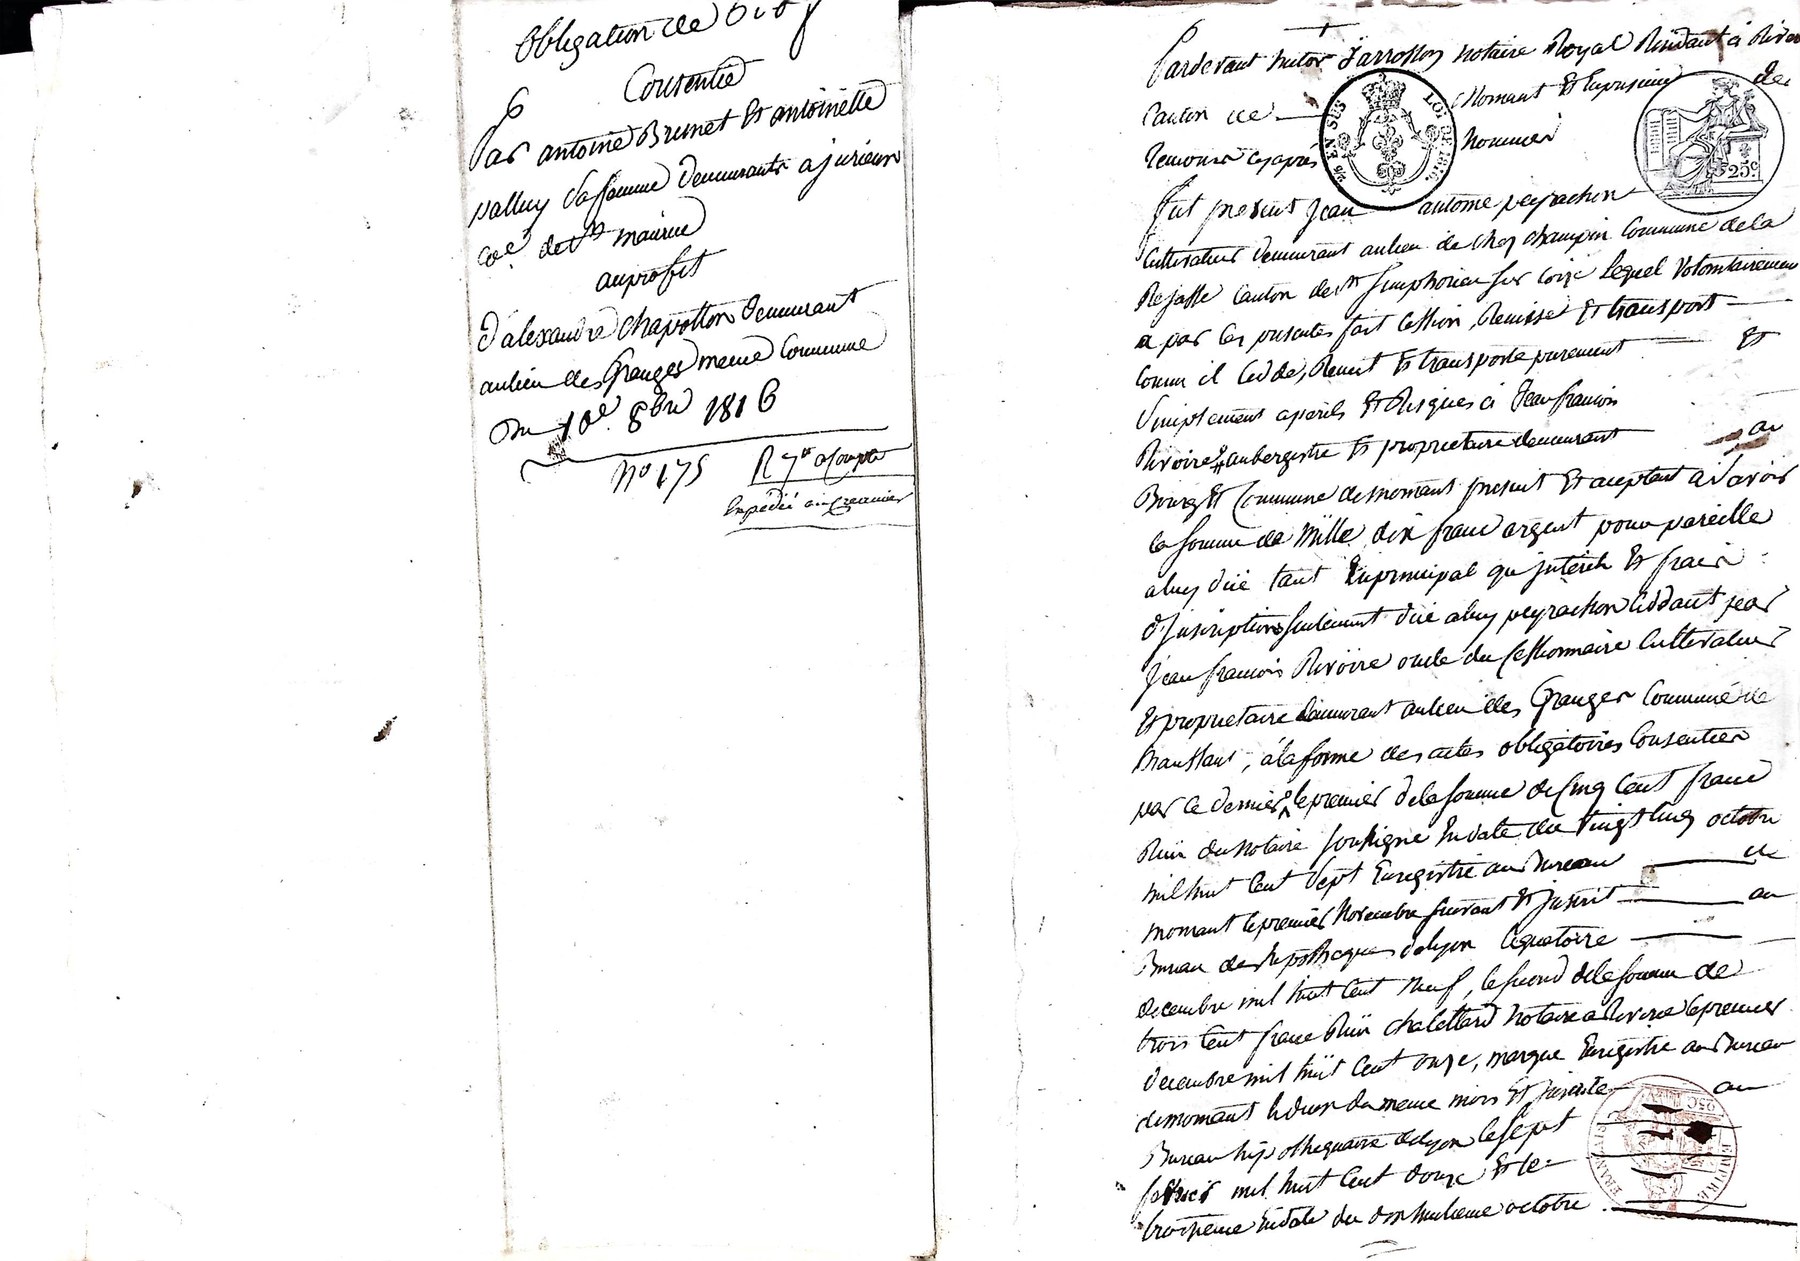 Obligation de
Consentie
Par antoine Brunet Et antoinette
palluy sa femme demeurants a jurieux
co.e de St maurice
au profit
d'alexandre chapotton demeurant
au lieu des Granges meme Commune
Du 10.e 8bre 1816
No 175 R 7 fr a Compte
Expédié au Creancier
Pardevant notaire Royal Residant à River
Canton de Mornant Et En presence de
temoins cy après Nommés
LOI DE 1816
25c
fut present Jean antoine peyrachon
Cultivateur demeurant au lieu de chez champin Commune de la
Rajasse Canton de St simphorien sur Coize Lequel Volontairement
a par les presentes fait Cession, Remise Et transport
comm il Cedde, Remet Et transporte purement Et
simplement a perils Et Risques à Jean francois
Rivoire aubergiste Et proprietaire demeurant au
Bourg Et Commune de mornant present Et aceptant a Savoir
la somme de Mille dix franc argent pour pareille
a luy düe tant En principal qu'interêt Et frais
d'Inscription seulement düe a luy peyrachon Cèddant par
Jean francois Rivoire oncle du Cessionnaire Cultivateur
Et proprietaire demeurant au lieu des Granges Commune de
, à la forme des actes obligatoires Consenties
par ce dernier, le premier de la somme de Cinq Cent franc
Reçu du Notaire soussigné En date du Vingt Cinq octobre
mil huit Cent Sept Enregistré au Bureau de
mornant le premier Novembre suivant Et inscrit au
Bureau des hypotheques de Lyon le quatorze
decembre mil huit Cent Neuf, le second de la somme de
trois Cent franc Reçu chalettard Notaire a Riverie le premier
decembre mil huit Cent onze, Enregistré au Bureau
de mornant le du meme mois Et inscrite au
Bureau hipothequaire de Lyon le sept
mil huit Cent douze Et le
troisieme En date du dix huitieme octobre